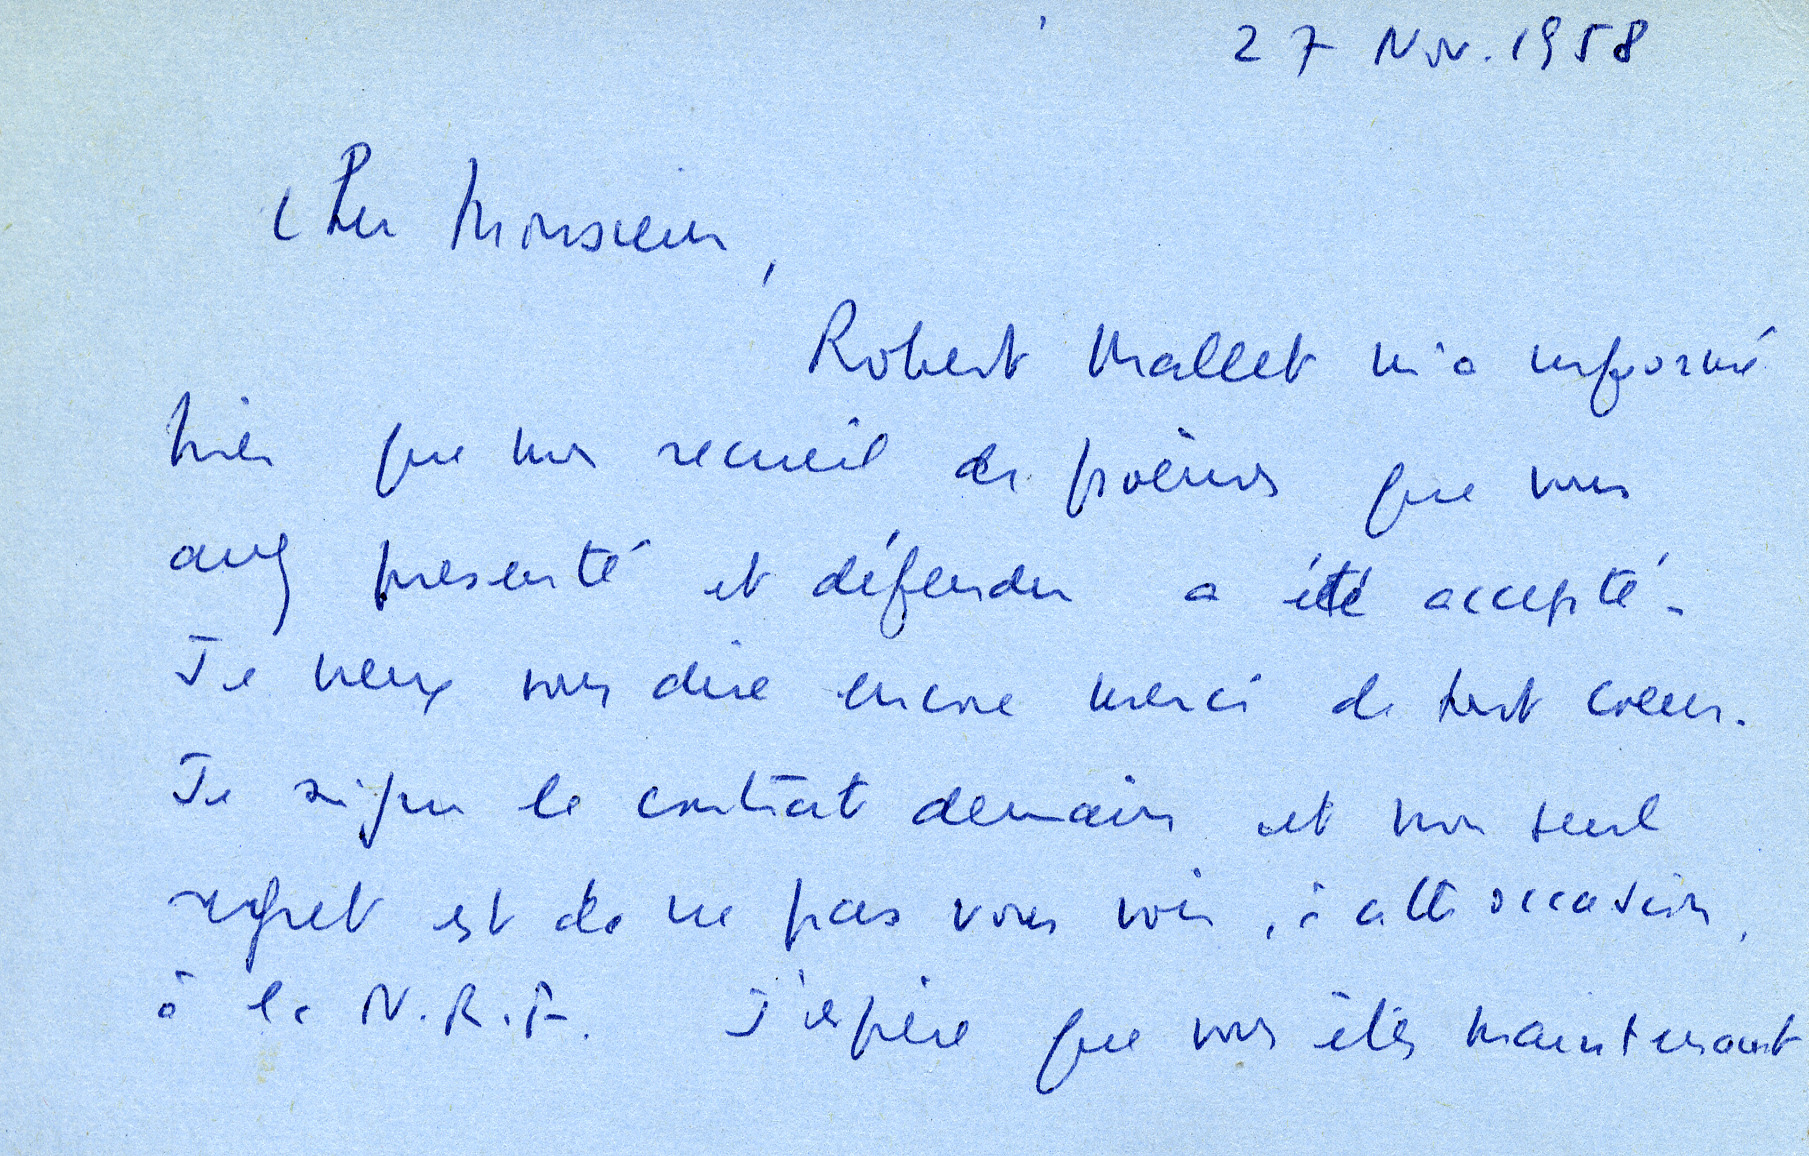 27 Nov. 1958
Cher Monsieur,
Robert Mallet m'a informé
hier que mon recueil de poèmes que vous
avez présenté et défendu a été accepté.
Je veux vous dire encore merci de tout coeur.
Je signe le contrat demain et mon seul
regret est de ne pas vous voir, à cette occasion,
à la N.R.F. J'espère que vous êtes maintenant